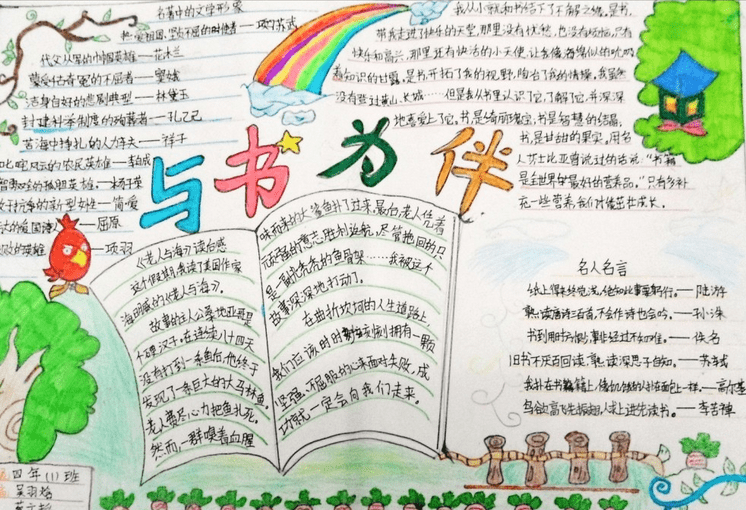 与书为伴
名著中的文学形象
热爱祖国、坚贞不屈的时传者——项苏武
代父从军的巾帼英雄——花木兰
蒙受估奇冤的不屈者——窦娥
洁身自好的悲剧典型——林黛玉
封建科举制度的殉葬者——孔乙己
苦海中挣扎的人力车夫——祥子
叱咤风云的农民英雄——李自成
孤胆英雄——杨子荣
抗争的新型女性——简爱
的爱国诗人——屈原
败的英雄——项羽
我从小就和书结下了不解之缘,是书,
带我走进了快乐的天堂,那里没有忧愁,也没有烦恼,只有
快乐和高兴,那里还有快活的小天使,让我像海绵似的吮吸
着知识的甘露,是书开拓了我的视野,陶冶了我的情操,我虽然
没有登过黄山、长城……但是我从书里认识了它,了解了它,并深深
地喜爱上了它。书是绮丽瑰宝,书是智慧的结晶,
书是甘甜的果实,用名
人莎士比亚曾说过的话说:"书籍
是全世界最好的营养品。"只有多补
充一些营养,我们才像茁壮成长。
《老人与海》读后感
这个假期我读了美国作家
海明威的《老人与海》。
故事的主人公桑地亚哥是
个硬汉子,在连续八十四天
没有打到一条鱼后,他终于
发现了一条巨大的大马林鱼。
老人费尽心力把鱼扎死。
然而,一群嗅着血腥
味而来的大鲨鱼扑了过来,最后,老人凭着
顽强的意志胜利返航,尽管拖回的只
是一副光秃秃的鱼骨架……我被这个
故事深深地打动了。
在曲折坎坷的人生道路上,
我们应该时时刻刻拥有一颗
坚强、不屈服的心来面对失败,成
功就一定会向我们走来。
名人名言
纸上得来终觉浅,绝知此事要躬行。——陆游
熟读唐诗三百首,不会作诗也会吟。——孙洙
书到用时方恨少,事非经过不知难。——佚名
旧书不厌百回读,熟读深思子自知。——苏轼
我扑在书籍上,像饥饿的人扑在面包上一样。——高尔基
鸟欲高飞先振翅,人求上进先读书。——李苦禅
四年(1)班
吴羽